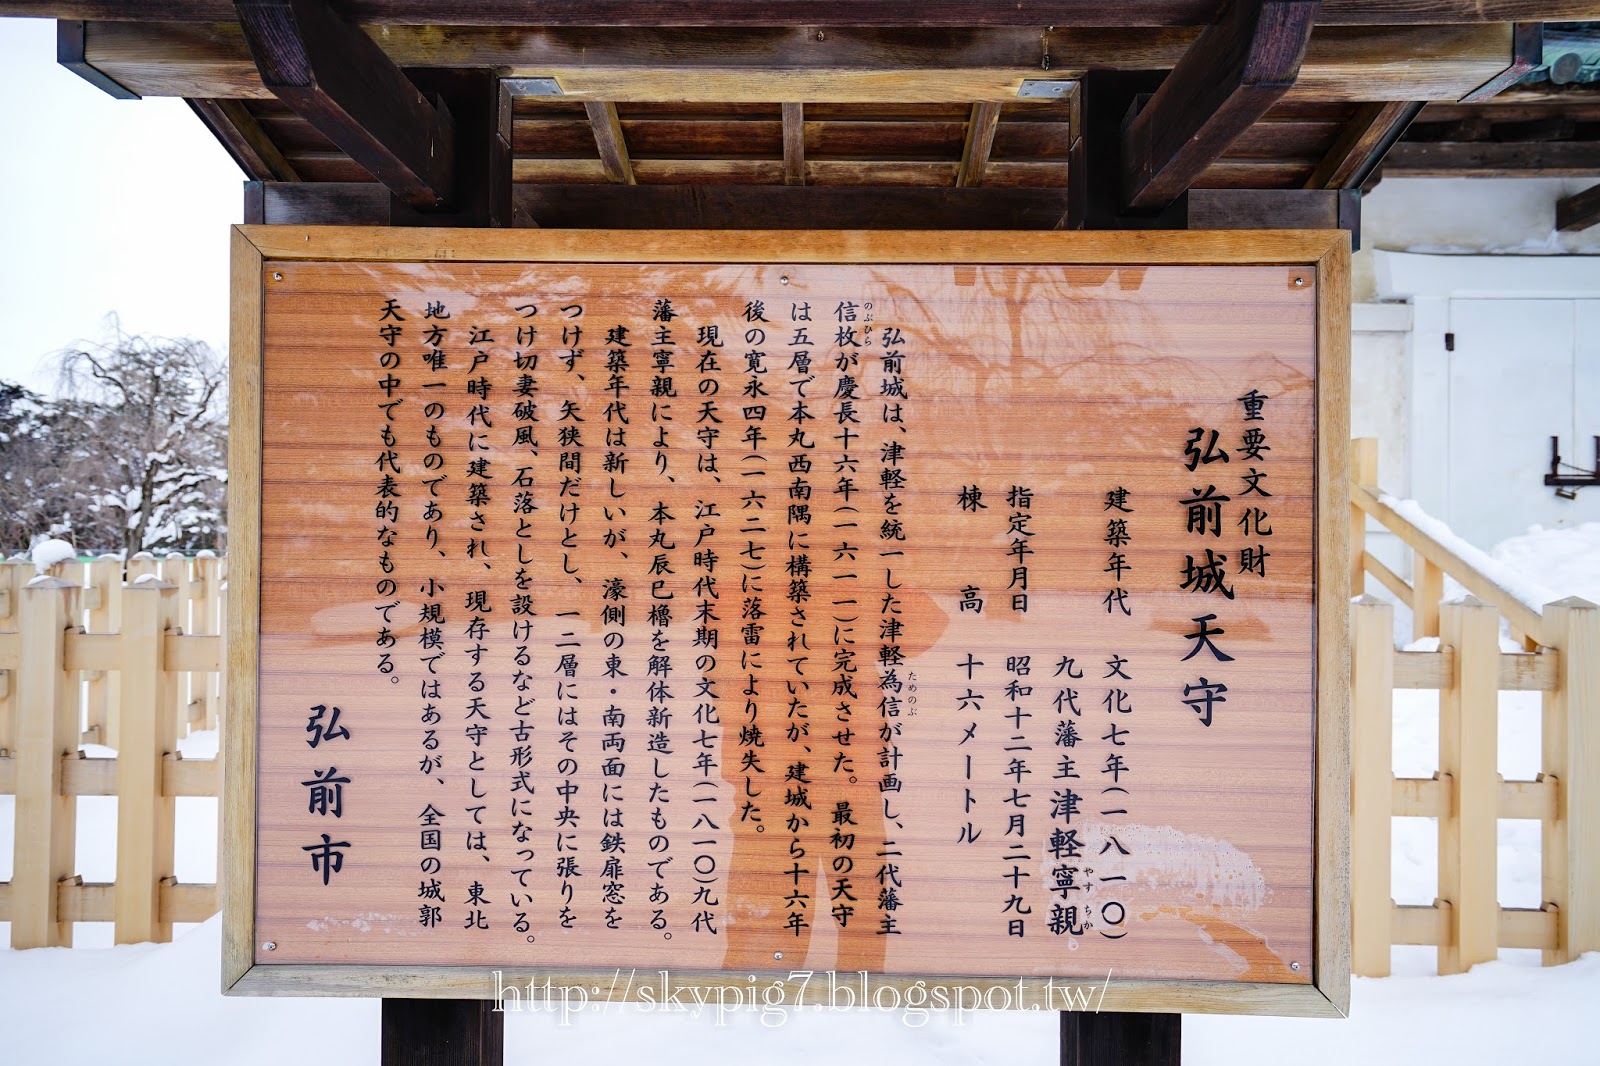 重要文化財
弘前城天守
建築年代　文化七年(一八一〇)
九代藩主津軽寧親
やすちか
指定年月日　昭和十二年七月二十九日
棟高　十六メートル
弘前城は、津軽を統一した津軽為信が計画し、二代藩主
ためのぶ
信枚が慶長十六年(一六一一)に完成させた。最初の天守
のぶひら
は五層で本丸西南隅に構築されていたが、建城から十六年
後の寛永四年(一六二七)に落雷により焼失した。
現在の天守は、江戸時代末期の文化七年(一八一〇)九代
藩主寧親により、本丸辰巳櫓を解体新造したものである。
建築年代は新しいが、濠側の東・南両面には鉄扉窓を
つけず、矢狭間だけとし、一二層にはその中央に張りを
つけ切妻破風、石落としを設けるなど古形式になっている。
江戸時代に建築され、現存する天守としては、東北
地方唯一のものであり、小規模ではあるが、全国の城郭
天守の中でも代表的なものである。
弘前市
http://skypig7.blogspot.tw/